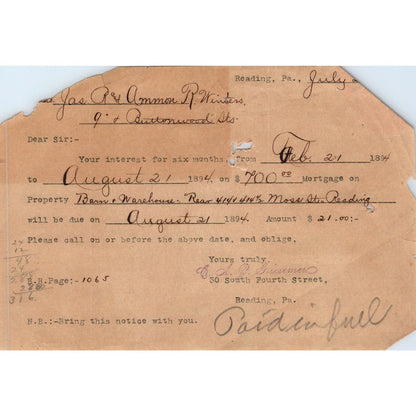 Reading, Pa., July 2
Jas R & Ammon R. Winters,
9th & Buttonwood Sts.
Dear Sir:-
Your interest for six months, from Feb. 21 1894
to August 21 1894 on $700.00 Mortgage on
Property Barn & Warehouse- Rear Moss St. Reading
will be due on August 21 1894. Amount $ 21.00:-
Please call on or before the above date, and oblige,
Yours truly,
30 South Fourth Street,
Reading, Pa.
Page:-1065
N.B.:-Bring this notice with you.
Paid in full
24
12
48
24
316